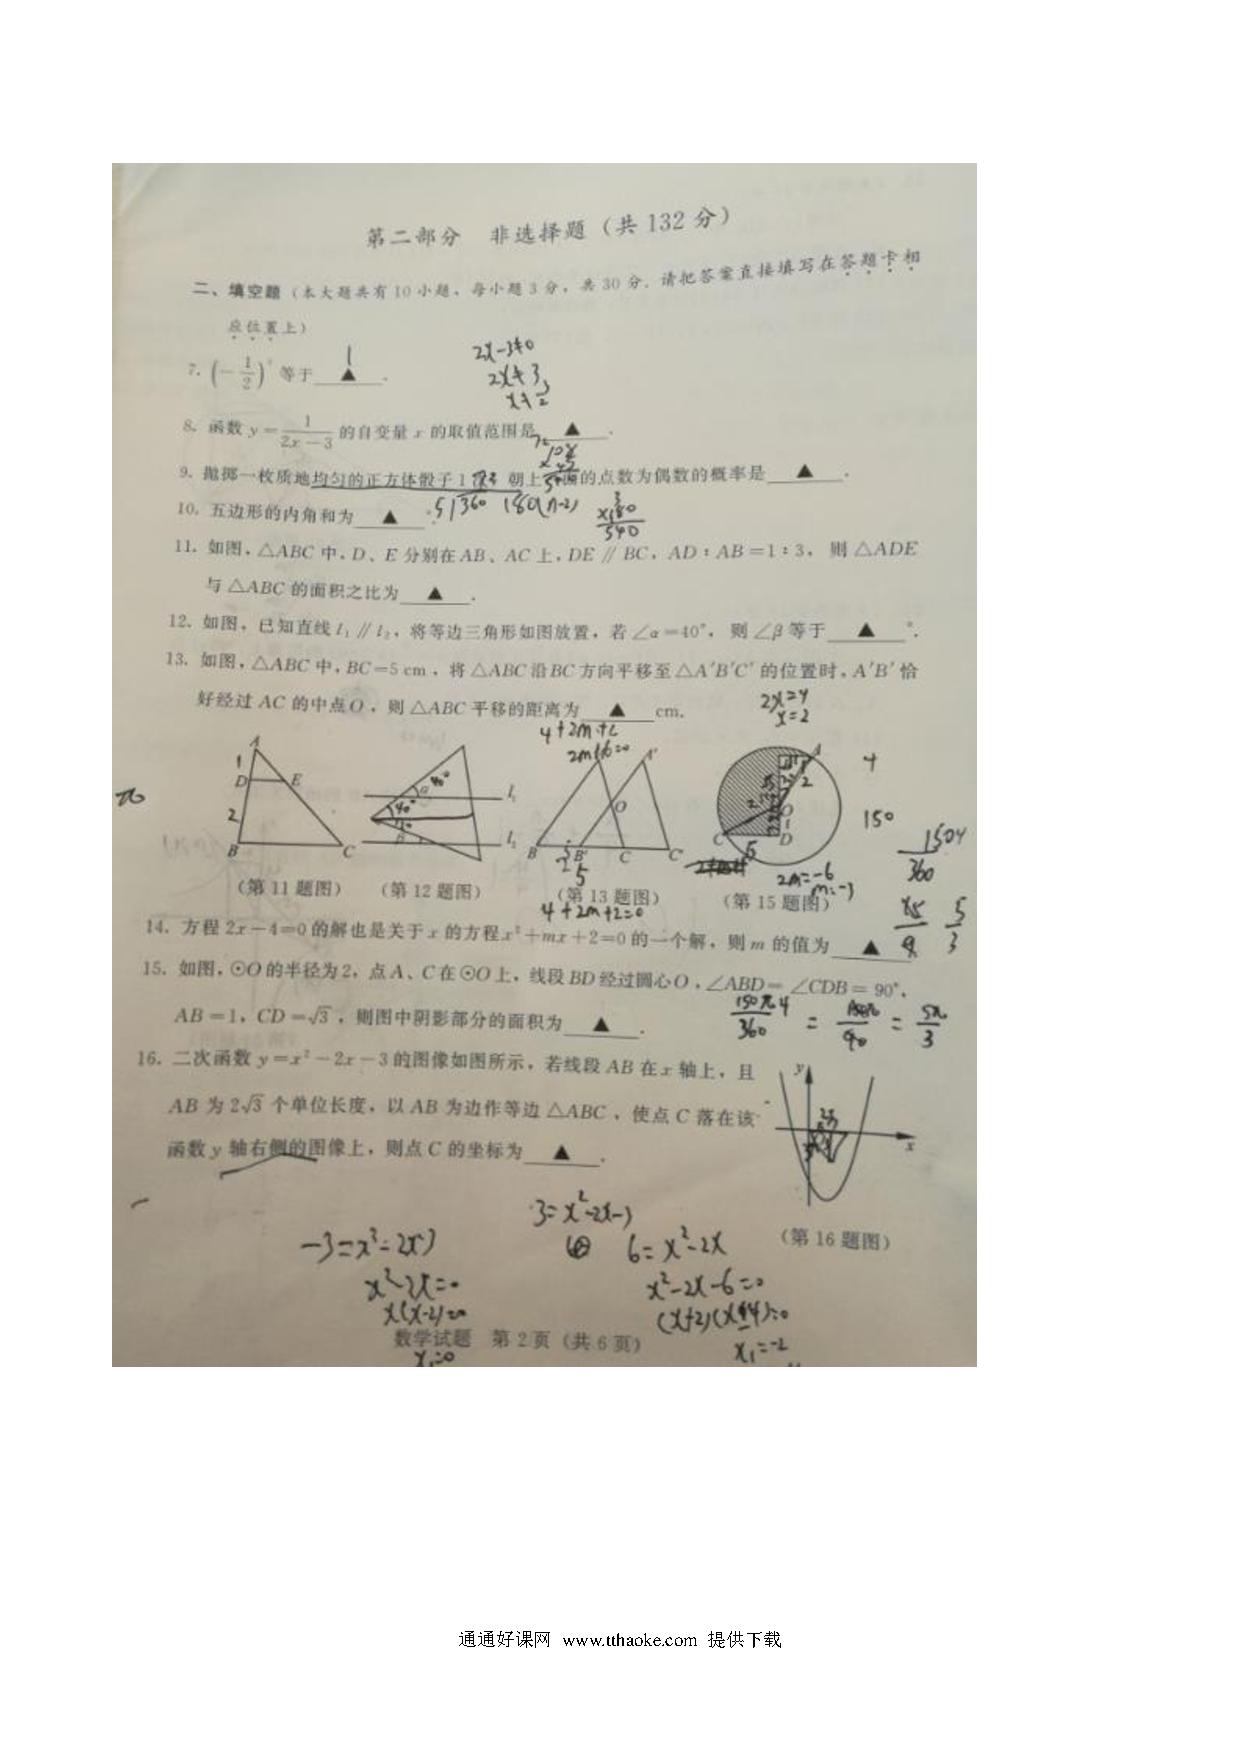 第二部分 非选择题（共 132 分）
二、填空题（本大题共有 10 小题，每小题 3 分，共 30 分．请把答案直接填写在答题卡相
应位置上）
1
2x-3≠0
7. (-1/2)⁰ 等于 ▲ ．
2x≠3
x≠3/2
8. 函数 y=1/(2x-3) 的自变量 x 的取值范围是 ▲ ．
9. 抛掷一枚质地均匀的正方体骰子 1 朝上 的点数为偶数的概率是 ▲ ．
10. 五边形的内角和为 ▲
5)360 180(n-2)
3
×180
540
11. 如图，△ABC 中，D、E 分别在 AB、AC 上，DE∥BC，AD∶AB=1∶3， 则△ADE
与△ABC 的面积之比为 ▲ ．
12. 如图，已知直线 l₁∥l₂，将等边三角形如图放置，若∠α=40°， 则∠β等于 ▲ °．
13. 如图，△ABC 中，BC=5 cm，将△ABC 沿 BC 方向平移至△A′B′C′的位置时，A′B′恰
好经过 AC 的中点 O，则△ABC 平移的距离为 ▲ cm．
2x=4
x=2
4+2m+2
2m+6=0
A
1
D E
2
B C
α 40°
40°
β
l₁
l₂
A′
O
B B′ C C′
5
A
2
O
1
C D
4
150
150 4
360
2m=-6
m=-3
（第 11 题图）
（第 12 题图）
（第 13 题图）
（第 15 题图）
4+2m+2=0
5
3
14. 方程 2x-4=0 的解也是关于 x 的方程 x²+mx+2=0 的一个解，则 m 的值为 ▲
15. 如图，⊙O 的半径为 2，点 A、C 在⊙O 上，线段 BD 经过圆心 O，∠ABD=∠CDB=90°，
AB=1，CD=√3，则图中阴影部分的面积为 ▲ ．
150π4/360 = = 5π/3
16. 二次函数 y=x²-2x-3 的图像如图所示，若线段 AB 在 x 轴上，且
AB 为 2√3 个单位长度，以 AB 为边作等边△ABC，使点 C 落在该
函数 y 轴右侧的图像上，则点 C 的坐标为 ▲ ．
y
x
（第 16 题图）
3=x²-2x-3
-3=x²-2x-3
6=x²-2x
x²-2x=0
x²-2x-6=0
x(x-2)=0
数学试题 第 2 页（共 6 页）
x₁=0
x₁=-2
通通好课网 www.tthaoke.com 提供下载